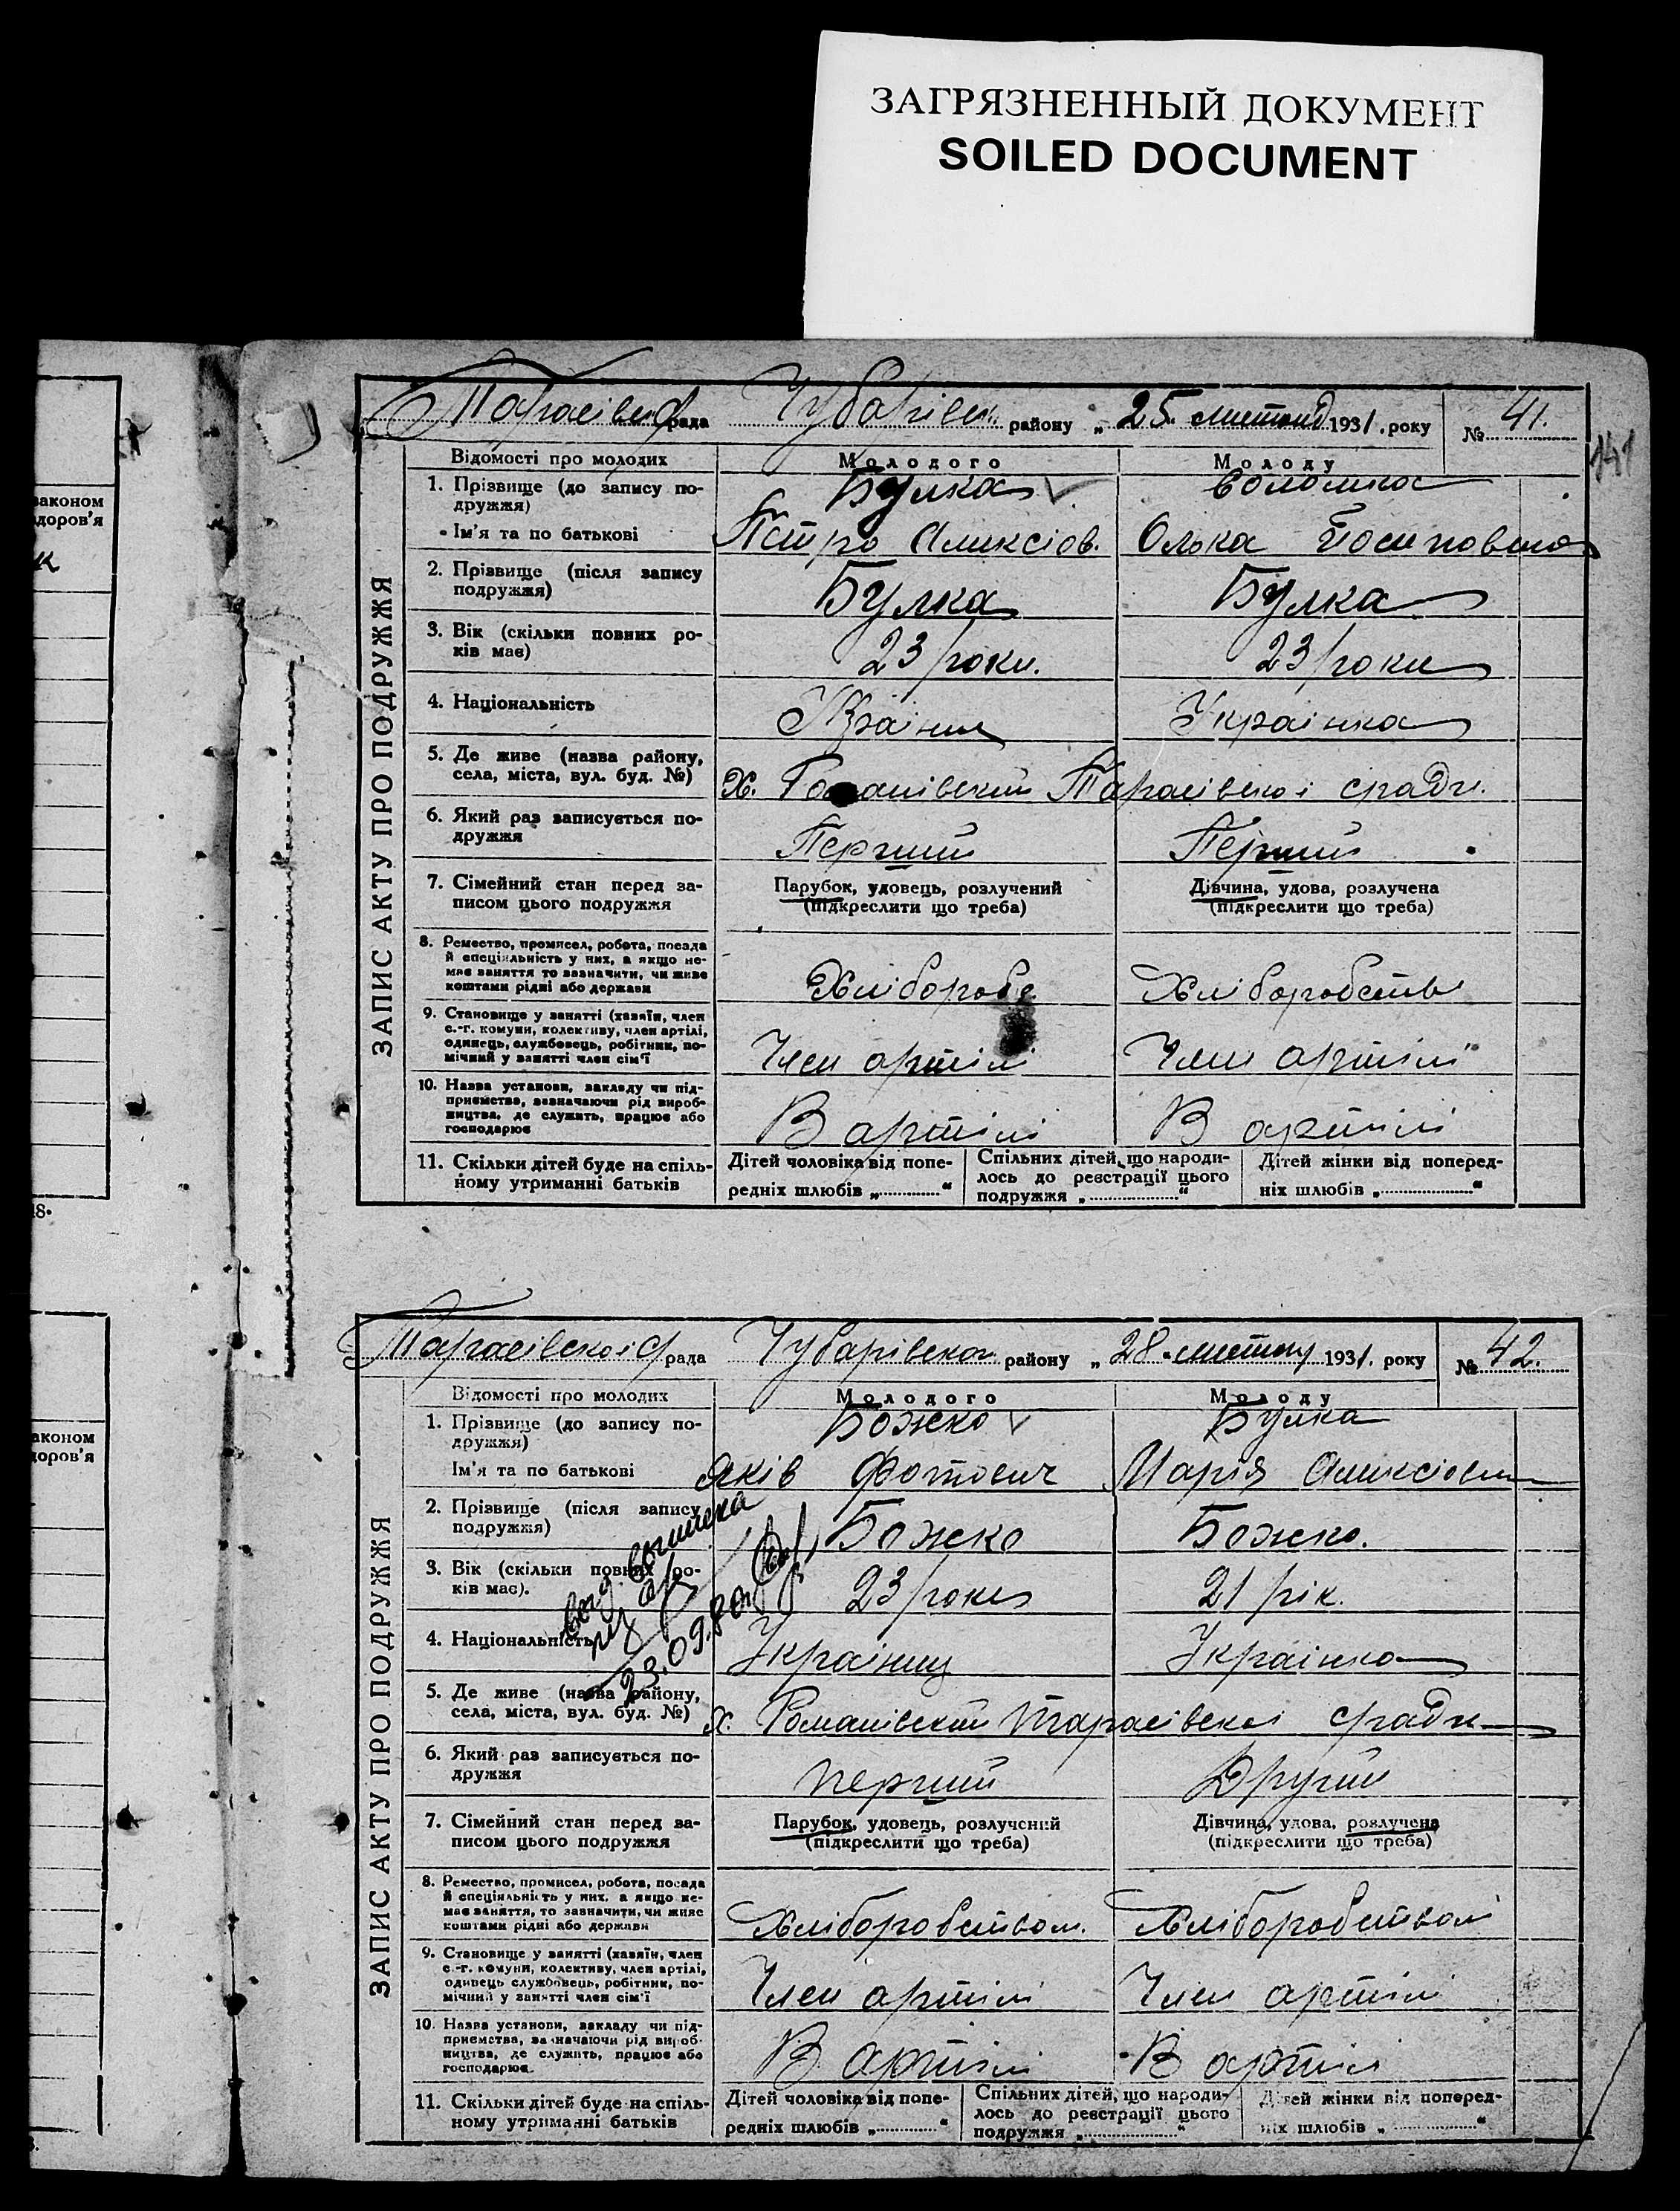 ЗАГРЯЗНЕННЫЙ ДОКУМЕНТ
SOILED DOCUMENT
законом
здоров'я
к
законом
здоров'я
141
ЗАПИС АКТУ ПРО ПОДРУЖЖЯ
рада Чубарівськ. району „ 25 листопад 1931. року № 41.
Відомості про молодих Молодого Молоду
1. Прізвище (до запису по- Булка
дружжя)
Ім'я та по батькові Петро Олексієв. Олька
2. Прізвище (після запису Булка Булка
подружжя)
3. Вік (скільки повних ро- 23 роки. 23 роки
ків має)
4. Національність Українка
5. Де живе (назва району,
села, міста, вул. буд. №) Х. Тарасівської сради.
6. Який раз записується по- Перший Перший
дружжя
7. Сімейний стан перед за- Парубок, удовець, розлучений Дівчина, удова, розлучена
писом цього подружжя (підкреслити що треба) (підкреслити що треба)
8. Ремество, промисел, робота, посада
й спеціяльність у них, а якщо не-
має заняття то зазначити, чи живе
коштами рідні або держави Хлібороб
9. Становище у занятті (хазяїн, член
с.-г. комуни, колективу, член артілі,
одинець, службовець, робітник, по-
мічний у занятті член сім'ї Член артілі Член артілі
10. Назва установи, закладу чи під-
приємства, зазначаючи рід вироб-
ництва, де служить, працює або
господарює В артілі В артілі
11. Скільки дітей буде на спіль- Дітей чоловіка від попе- Спільних дітей, що народи- Дітей жінки від поперед-
ному утриманні батьків редніх шлюбів „ “ лось до реєстрації цього ніх шлюбів „ “
подружжя „ “
ЗАПИС АКТУ ПРО ПОДРУЖЖЯ
Тарасівської с рада Чубарівськог району „ 28 листопад 1931. року № 42.
Відомості про молодих Молодого Молоду
1. Прізвище (до запису по- Божко Булка
дружжя)
Ім'я та по батькові Яків Фотович Марія
2. Прізвище (після запису Божко Божко.
подружжя)
3. Вік (скільки повних ро- 23 роки 21 рік.
ків має).
23.09.80
4. Національність Українець Українка
5. Де живе (назва району,
села, міста, вул. буд. №) х. Романівский Тарасівської сради
6. Який раз записується по- перший Другий
дружжя
7. Сімейний стан перед за- Парубок, удовець, розлучений Дівчина, удова, розлучена
писом цього подружжя (підкреслити що треба) (підкреслити що треба)
8. Ремество, промисел, робота, посада
й спеціяльність у них, а якщо не-
має заняття, то зазначити, чи живе
коштами рідні або держави Хліборобством. Хліборобством
9. Становище у занятті (хазяїн, член
с.-г. комуни, колективу, член артілі,
одинець службовець, робітник, по-
мічний у занятті член сім'ї Член артілі Член артілі
10. Назва установи, закладу чи під-
приємства, зазначаючи рід вироб-
ництва, де служить, працює або
господарює В артілі В артілі
11. Скільки дітей буде на спіль- Дітей чоловіка від попе- Спільних дітей, що народи- Дітей жінки від поперед-
ному утриманні батьків редніх шлюбів „ “ лось до реєстрації цього ніх шлюбів „ “
подружжя „ “